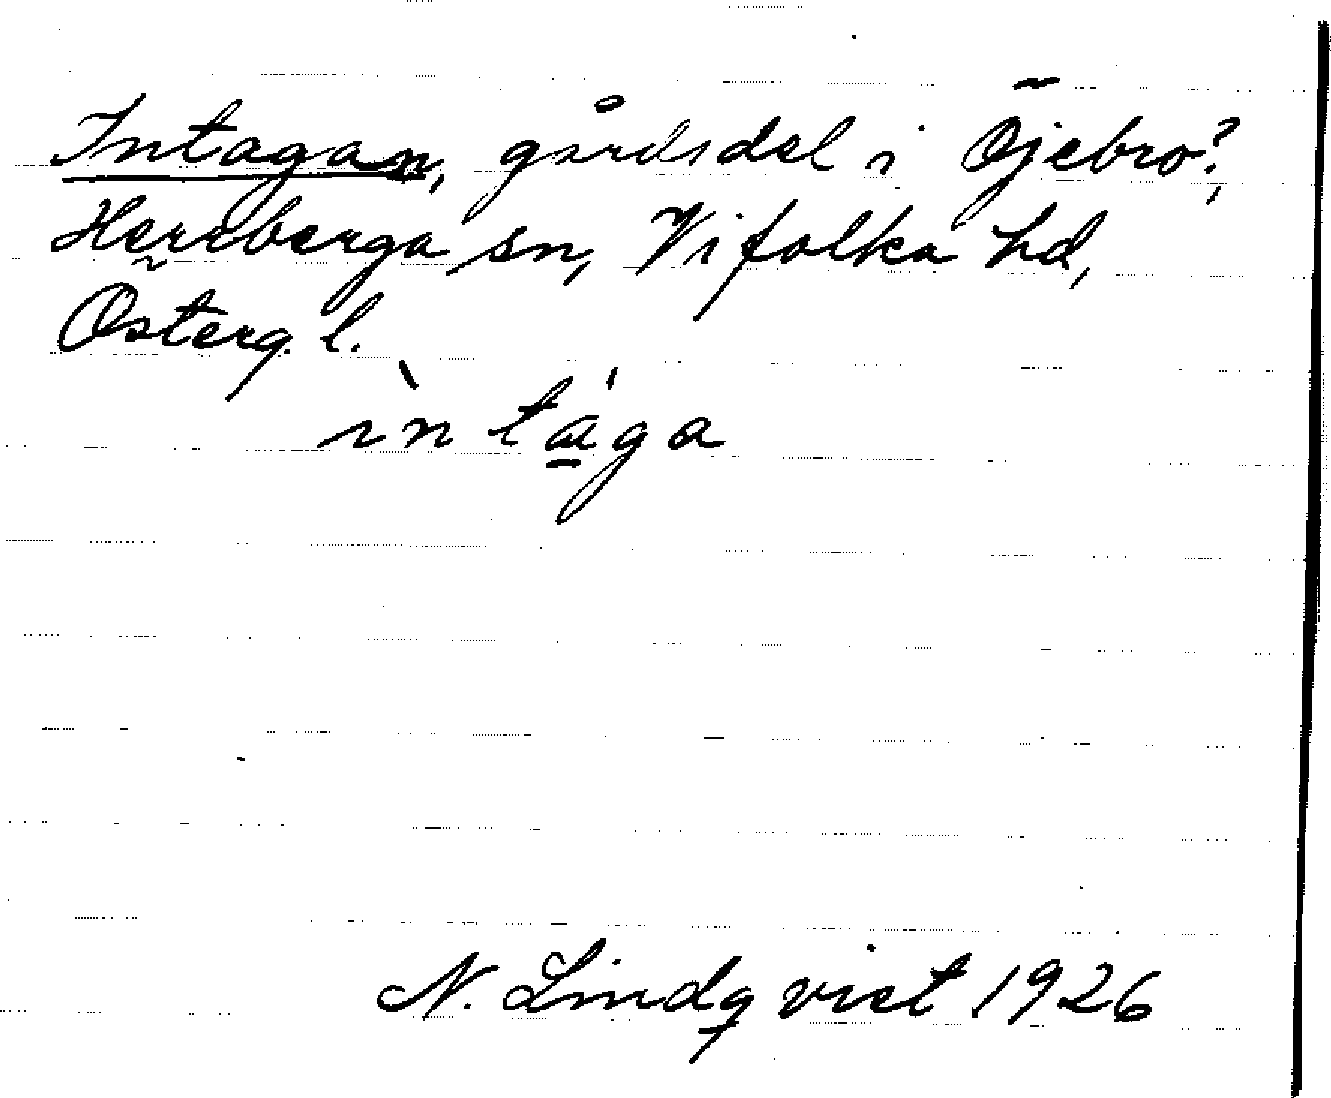 Intagan, gårdsdel i Öjebro?,
Herrberga sn, Vifolka hd,
Österg. l.
ìntá̱ga
N. Lindqvist 1926